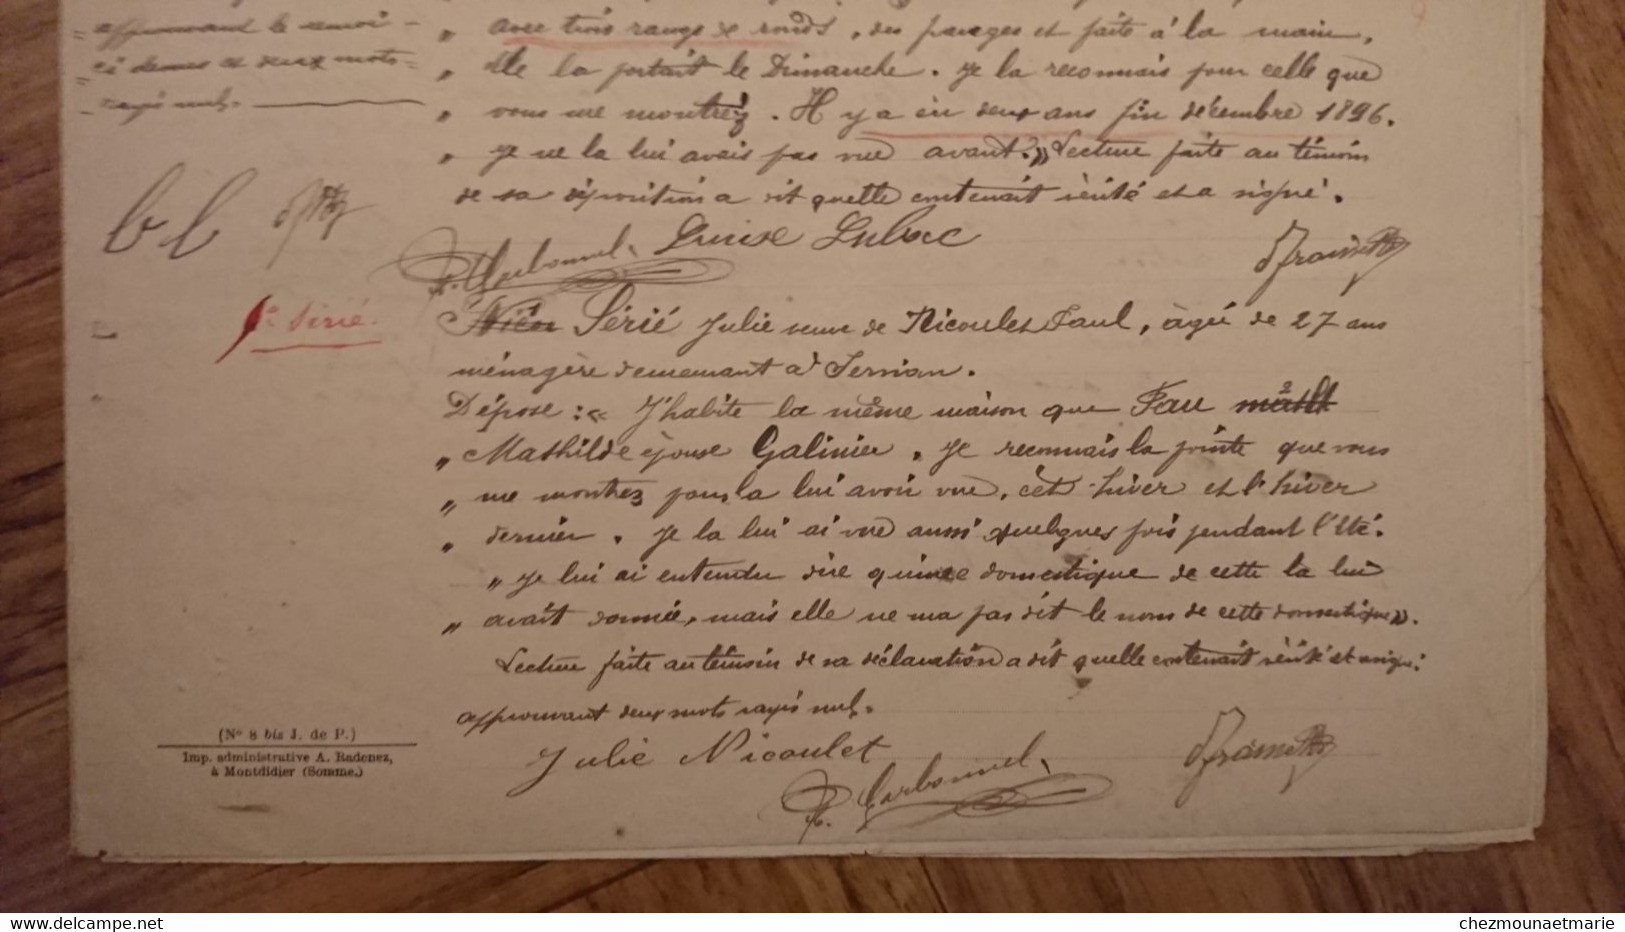 approuvant le renvoi
ci dessus et deux mots
rayés nuls.
" avec trois rangs de ronds, des parages et faite à la main,
" Elle la portait le Dimanche. Je la reconnais pour celle que
" vous me montrez. Il y a eu deux ans fin décembre 1896.
" Je ne la lui avais pas vue avant." Lecture faite au témoin
de sa déposition a dit quelle contenait vérité et a signé.
Louise Lubac
Carbonnel
Sérié.
Sérié Julie veuve de Nicoulet Paul, âgé de 27 ans
ménagère demeurant à Servian.
Dépose : « J'habite la même maison que Fau
" Mathilde épouse Galinier. Je reconnais la pointe que vous
" me montrez pour la lui avoir vue, cet hiver et l'hiver
" dernier. Je la lui ai vue aussi quelques fois pendant l'été.
" Je lui ai entendu dire domestique de cette la lui
" avait donnée, mais elle ne ma pas dit le nom de cette domestique ».
Lecture faite au témoin de sa déclaration a dit quelle contenait vérité et a signé.
approuvant deux mots rayés nuls.
Julie Nicoulet
Carbonnel
(N° 8 bis J. de P.)
Imp. administrative A. Radenez,
à Montdidier (Somme.)
www.delcampe.net
chezmounaetmarie